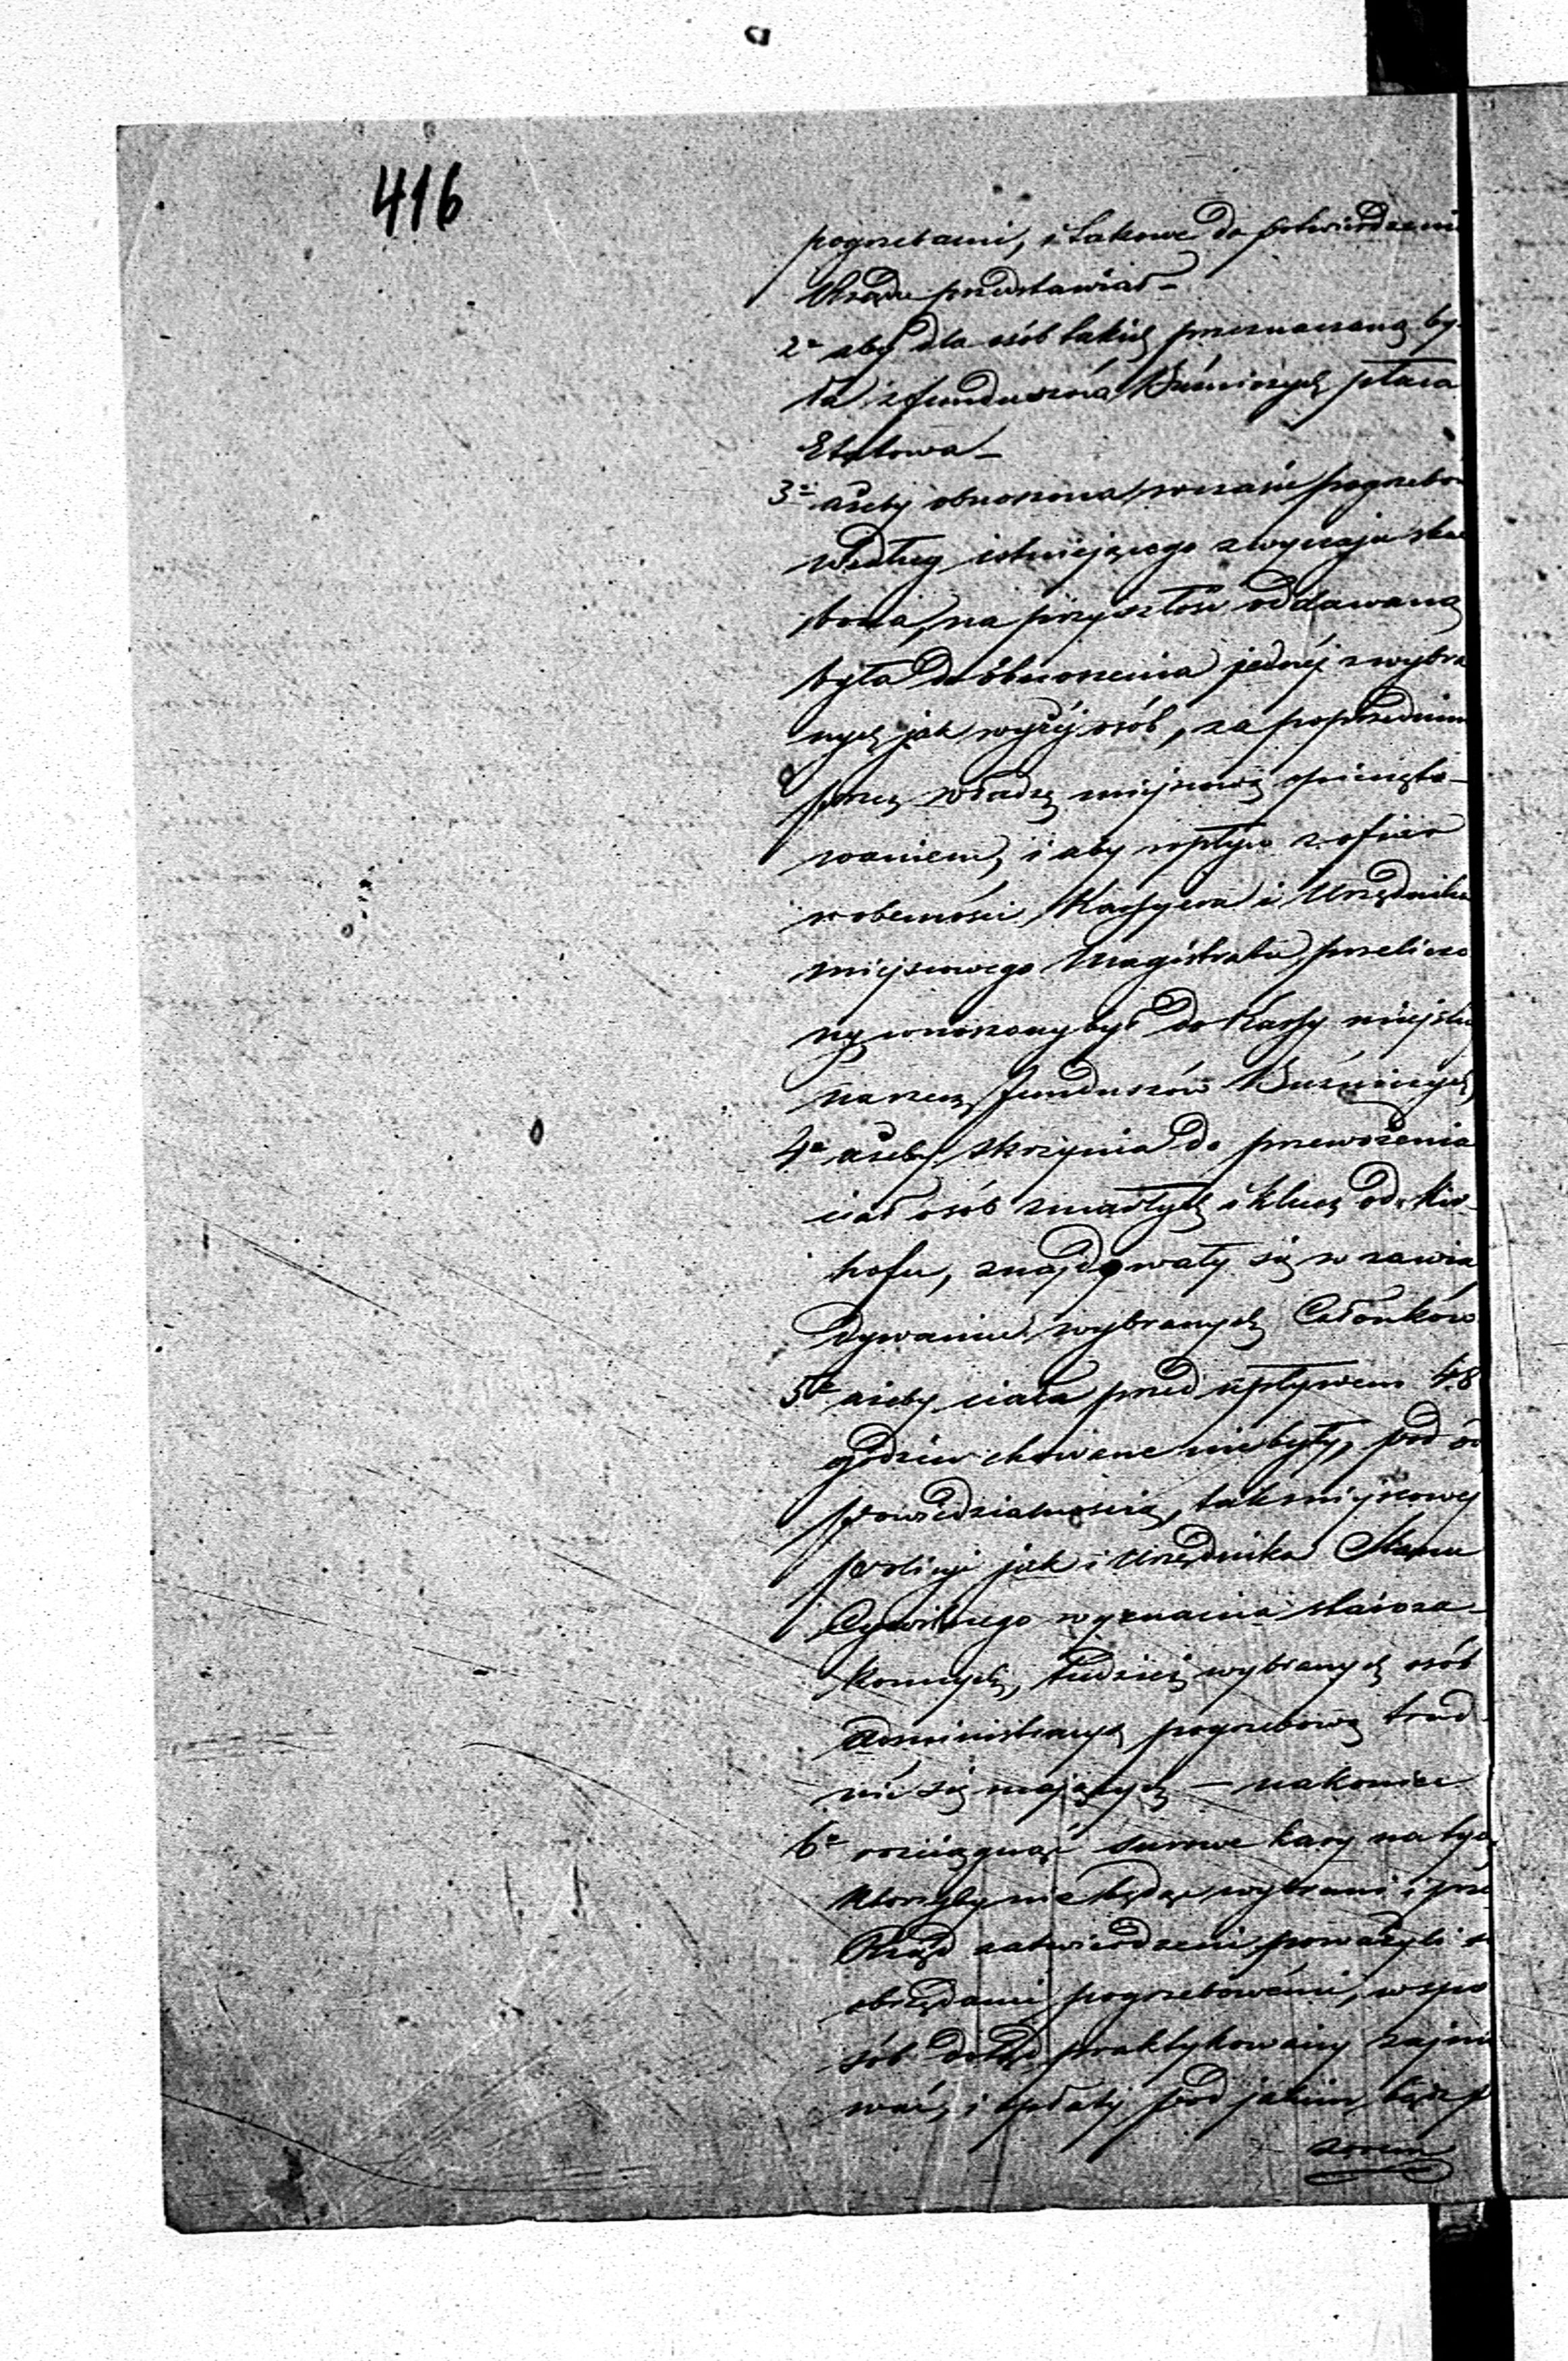 416
pogrzebami, i takowe do potwierdzeni
Urzędu przedstawiał –
2e aby dla osób takich przeznaczoną by-
ła z funduszów Bużniczych płaca
Etatowa –
3e ażeby obnoszona w czasie pogrzebów
według istniejącego zwyczaju skar
bona, na przyszłość oddawaną
była do obnoszenia jednéj z wybra
nych jak wyżéj osób, za poprzedniem
przez władzę miejscową opieczęto-
waniem, i aby wpływ z ofiar
w obecności Kassyera i Urzędnika
miejscowego Magistratu przeliczo
ny wnoszony był do Kassy miejskiej
na rzecz funduszów Bużniczych
4e ażeby skrzynia do przewożenia
ciał osób zmarłych i klucz od kir-
hofu, znajdowały się w zawia
dywaniu wybranych Członków
5e ażeby ciała przed upływem 48
godzin chowane niebyły, pod od
powiedzialnością, tak miejscowej
policyi jak i Urzędnika Stanu
Cywilnego wyznania staroza-
konnych, tudzież wybranych osób
administracyą pogrzebową trud-
nić się mających – nakoniec
6e rozciągnąć surowe kary na tych,
którzyby nie będąc wybrani i prze
Rząd zatwierdzeni, poważyli się
obrzędami pogrzebowémi, w spo
sób dotąd praktykowany zajmo
wać, i opłaty pod jakim bądź p
zorem